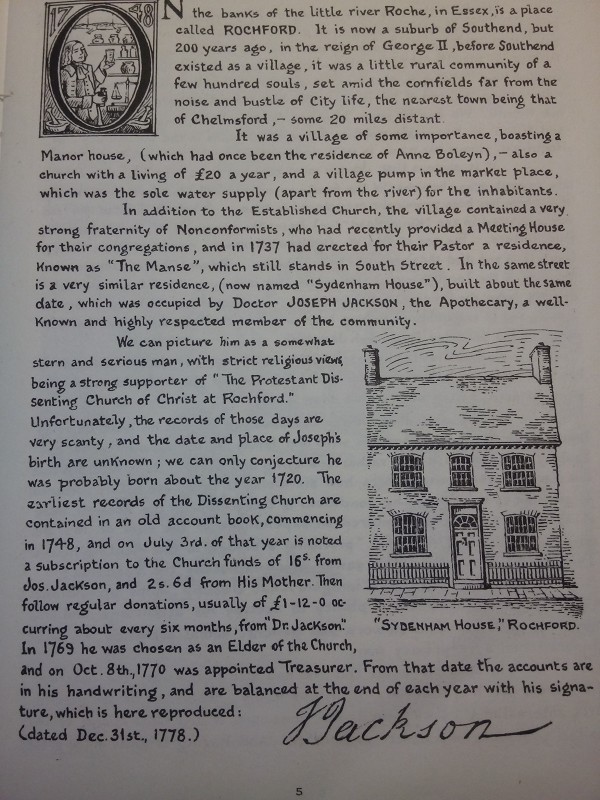 1748
ON the banks of the little river Roche, in Essex, is a place
called ROCHFORD. It is now a suburb of Southend, but
200 years ago, in the reign of George II, before Southend
existed as a village, it was a little rural community of a
few hundred souls, set amid the cornfields far from the
noise and bustle of City life, the nearest town being that
of Chelmsford,- some 20 miles distant.
It was a village of some importance, boasting a
Manor house, (which had once been the residence of Anne Boleyn),- also a
church with a living of £20 a year, and a village pump in the market place,
which was the sole water supply (apart from the river) for the inhabitants.
In addition to the Established Church, the village contained a very
strong fraternity of Nonconformists, who had recently provided a Meeting House
for their congregations, and in 1737 had erected for their Pastor a residence,
known as "The Manse", which still stands in South Street. In the same street
is a very similar residence, (now named "Sydenham House"), built about the same
date, which was occupied by Doctor JOSEPH JACKSON, the Apothecary, a well-
known and highly respected member of the community.
We can picture him as a somewhat
stern and serious man, with strict religious views,
being a strong supporter of "The Protestant Dis-
senting Church of Christ at Rochford."
Unfortunately, the records of those days are
very scanty, and the date and place of Joseph's
birth are unknown; we can only conjecture he
was probably born about the year 1720. The
earliest records of the Dissenting Church are
contained in an old account book, commencing
in 1748, and on July 3rd. of that year is noted
a subscription to the Church funds of 16s. from
Jos. Jackson, and 2s. 6d from His Mother. Then
follow regular donations, usually of £1-12-0 oc-
curring about every six months, from "Dr. Jackson."
In 1769 he was chosen as an Elder of the Church,
and on Oct. 8th., 1770 was appointed Treasurer. From that date the accounts are
in his handwriting, and are balanced at the end of each year with his signa-
ture, which is here reproduced:
(dated Dec. 31st., 1778.)
JJackson
"SYDENHAM HOUSE," ROCHFORD.
5